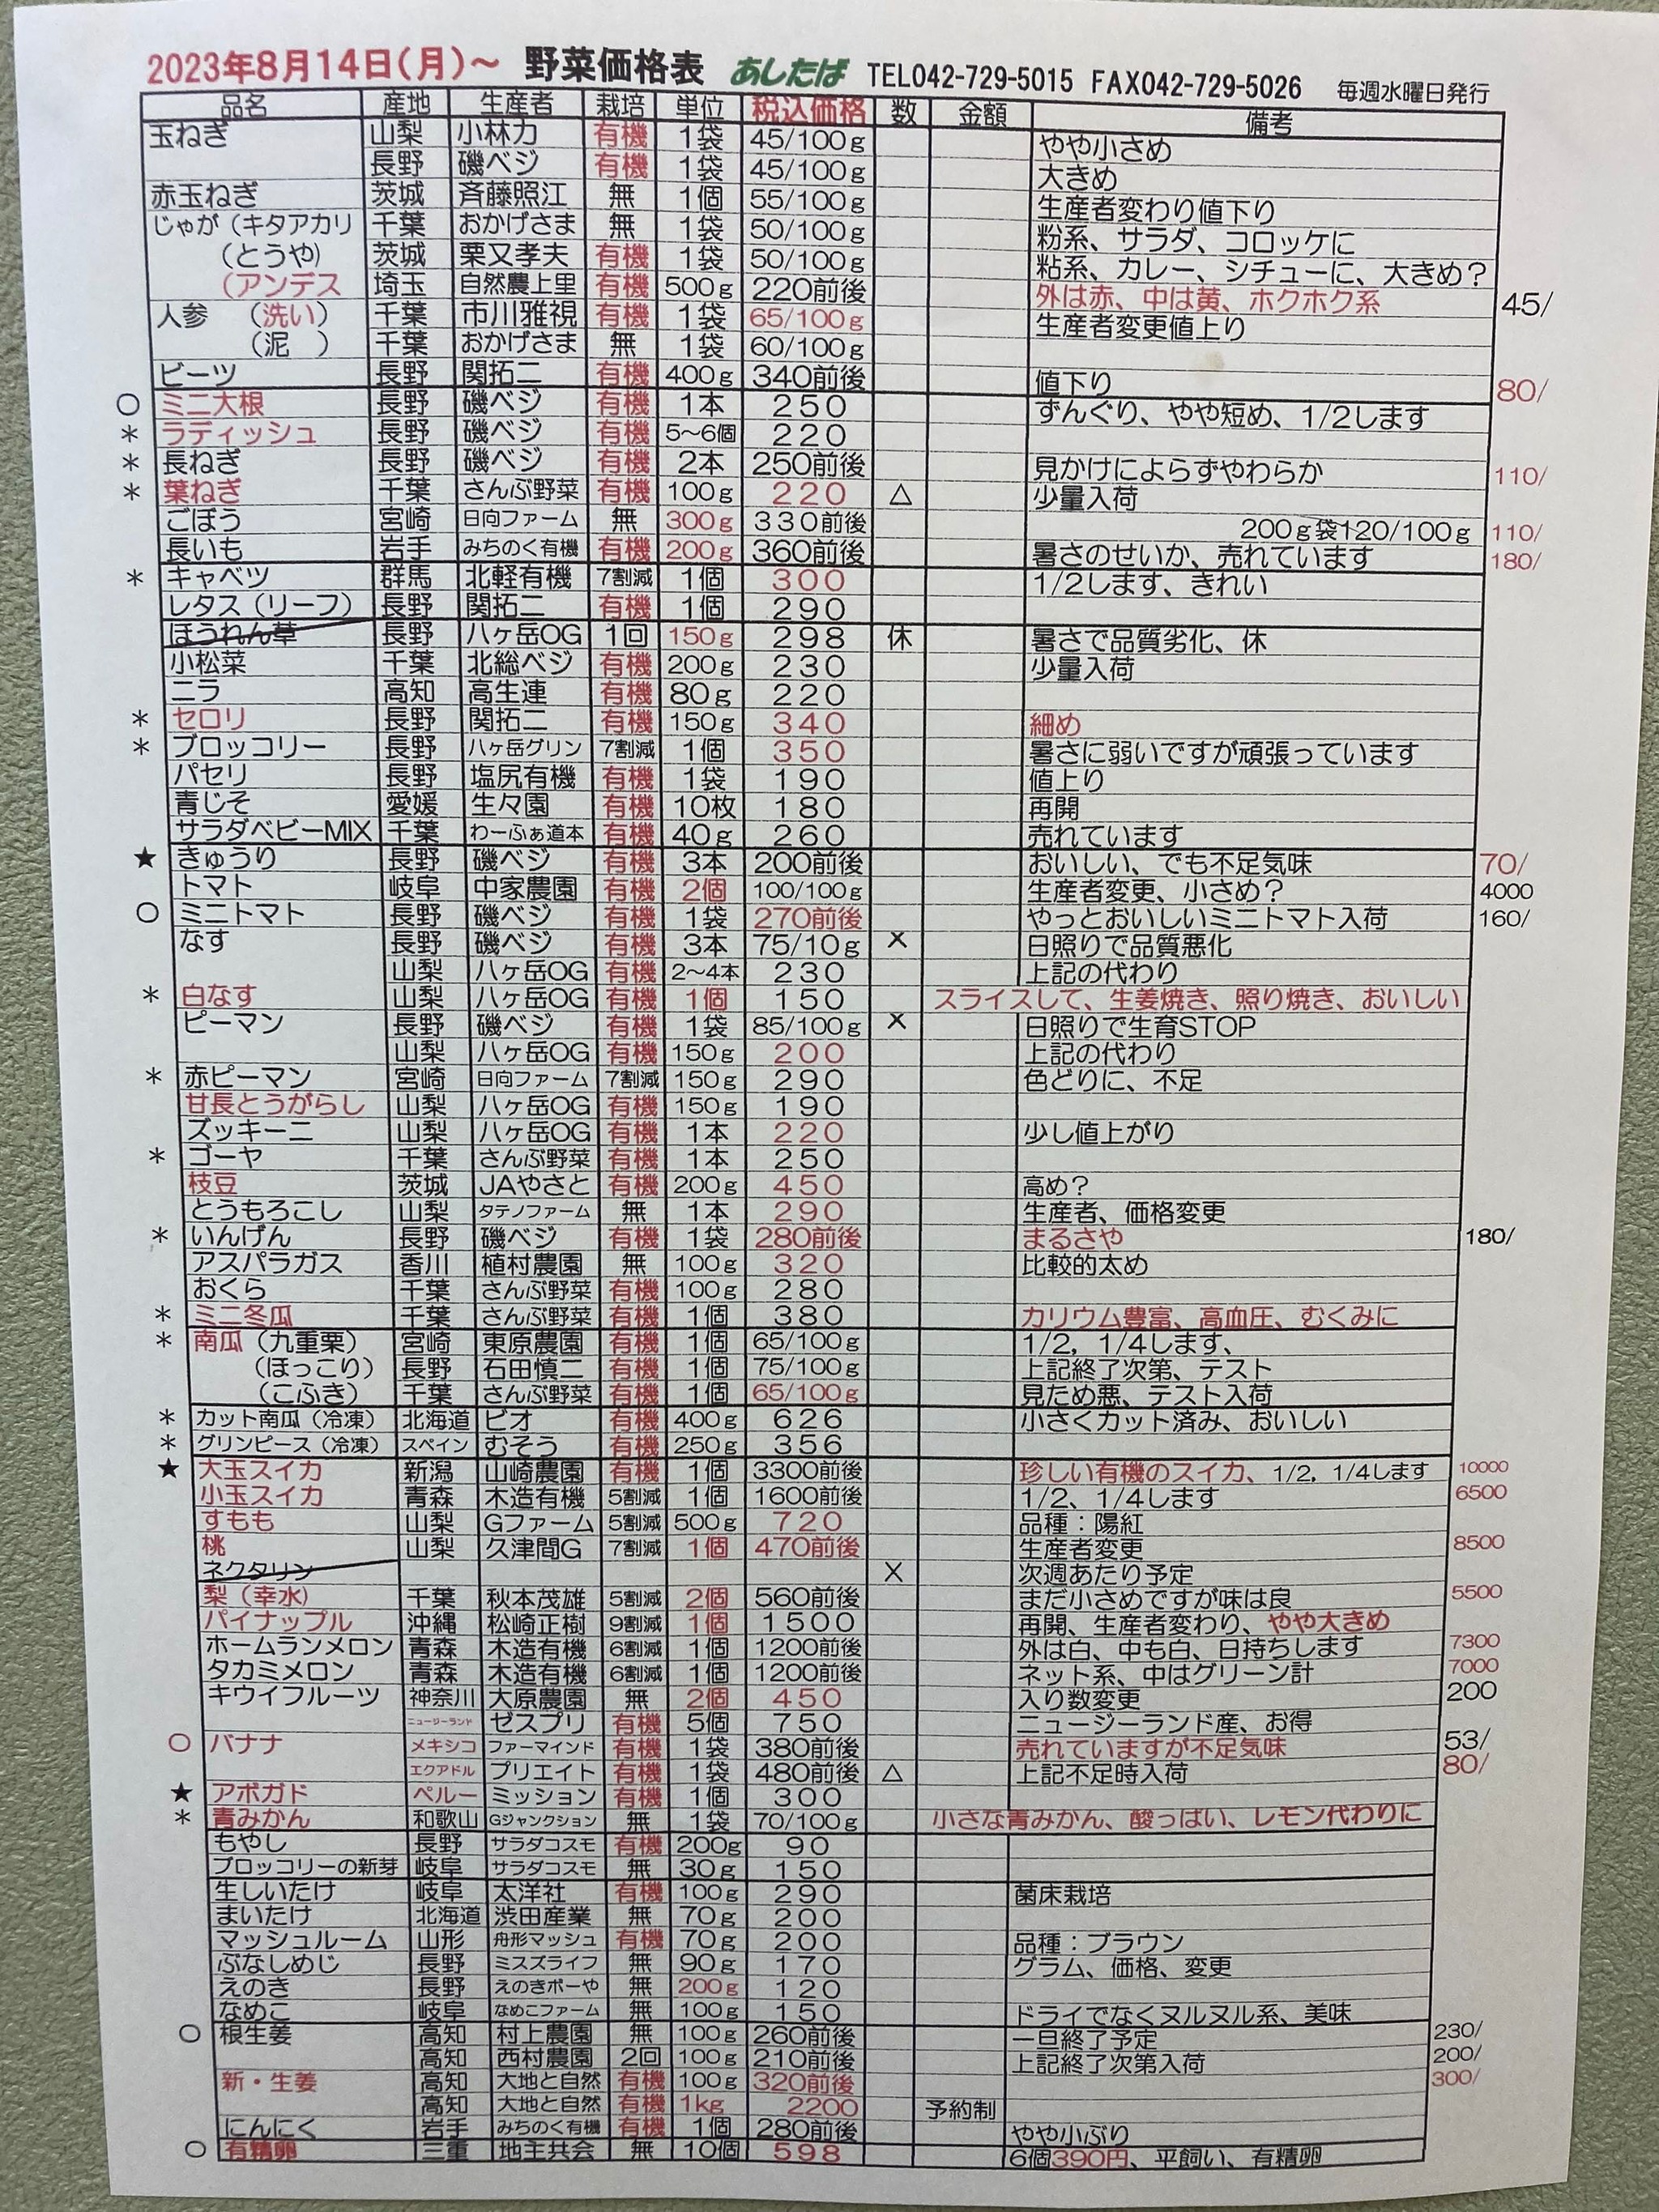 2023年8月14日(月)～ 野菜価格表 あしたば TEL042-729-5015 FAX042-729-5026 毎週水曜日発行
品名 産地 生産者 栽培 単位 税込価格 数 金額 備考
玉ねぎ 山梨 小林力 有機 1袋 45/100g やや小さめ
長野 磯ベジ 有機 1袋 45/100g 大きめ
赤玉ねぎ 茨城 斉藤照江 無 1個 55/100g 生産者変わり値下り
じゃが(キタアカリ 千葉 おかげさま 無 1袋 50/100g 粉系、サラダ、コロッケに
(とうや) 茨城 栗又孝夫 有機 1袋 50/100g 粘系、カレー、シチューに、大きめ?
(アンデス 埼玉 自然農上里 有機 500g 220前後 外は赤、中は黄、ホクホク系 45/
人参 (洗い) 千葉 市川雅視 有機 1袋 65/100g 生産者変更値上り
(泥 ) 千葉 おかげさま 無 1袋 60/100g
ビーツ 長野 関拓二 有機 400g 340前後 値下り 80/
○ ミニ大根 長野 磯ベジ 有機 1本 250 ずんぐり、やや短め、1/2します
* ラディッシュ 長野 磯ベジ 有機 5～6個 220
* 長ねぎ 長野 磯ベジ 有機 2本 250前後 見かけによらずやわらか 110/
* 葉ねぎ 千葉 さんぶ野菜 有機 100g 220 △ 少量入荷
ごぼう 宮崎 日向ファーム 無 300g 330前後 200g袋120/100g 110/
長いも 岩手 みちのく有機 有機 200g 360前後 暑さのせいか、売れています 180/
* キャベツ 群馬 北軽有機 7割減 1個 300 1/2します、きれい
レタス(リーフ) 長野 関拓二 有機 1個 290
ほうれん草 長野 八ヶ岳OG 1回 150g 298 休 暑さで品質劣化、休
小松菜 千葉 北総ベジ 有機 200g 230 少量入荷
ニラ 高知 高生連 有機 80g 220
* セロリ 長野 関拓二 有機 150g 340 細め
* ブロッコリー 長野 八ヶ岳グリン 7割減 1個 350 暑さに弱いですが頑張っています
パセリ 長野 塩尻有機 有機 1袋 190 値上り
青じそ 愛媛 生々園 有機 10枚 180 再開
サラダベビーMIX 千葉 わーふぁ道本 有機 40g 260 売れています
★ きゅうり 長野 磯ベジ 有機 3本 200前後 おいしい、でも不足気味 70/
トマト 岐阜 中家農園 有機 2個 100/100g 生産者変更、小さめ? 4000
○ ミニトマト 長野 磯ベジ 有機 1袋 270前後 やっとおいしいミニトマト入荷 160/
なす 長野 磯ベジ 有機 3本 75/10g × 日照りで品質悪化
山梨 八ヶ岳OG 有機 2～4本 230 上記の代わり
* 白なす 山梨 八ヶ岳OG 有機 1個 150 スライスして、生姜焼き、照り焼き、おいしい
ピーマン 長野 磯ベジ 有機 1袋 85/100g × 日照りで生育STOP
山梨 八ヶ岳OG 有機 150g 200 上記の代わり
* 赤ピーマン 宮崎 日向ファーム 7割減 150g 290 色どりに、不足
甘長とうがらし 山梨 八ヶ岳OG 有機 150g 190
ズッキーニ 山梨 八ヶ岳OG 有機 1本 220 少し値上がり
* ゴーヤ 千葉 さんぶ野菜 有機 1本 250
枝豆 茨城 JAやさと 有機 200g 450 高め?
とうもろこし 山梨 タテノファーム 無 1本 290 生産者、価格変更
* いんげん 長野 磯ベジ 有機 1袋 280前後 まるさや 180/
アスパラガス 香川 植村農園 無 100g 320 比較的太め
おくら 千葉 さんぶ野菜 有機 100g 280
* ミニ冬瓜 千葉 さんぶ野菜 有機 1個 380 カリウム豊富、高血圧、むくみに
* 南瓜(九重栗) 宮崎 東原農園 有機 1個 65/100g 1/2, 1/4します、
(ほっこり) 長野 石田慎二 有機 1個 75/100g 上記終了次第、テスト
(こふき) 千葉 さんぶ野菜 有機 1個 65/100g 見ため悪、テスト入荷
* カット南瓜(冷凍) 北海道 ビオ 有機 400g 626 小さくカット済み、おいしい
* グリンピース(冷凍) スペイン むそう 有機 250g 356
★ 大玉スイカ 新潟 山崎農園 有機 1個 3300前後 珍しい有機のスイカ、1/2, 1/4します 10000
小玉スイカ 青森 木造有機 5割減 1個 1600前後 1/2、1/4します 6500
すもも 山梨 Gファーム 5割減 500g 720 品種：陽紅
桃 山梨 久津間G 7割減 1個 470前後 生産者変更 8500
ネクタリン × 次週あたり予定
梨(幸水) 千葉 秋本茂雄 5割減 2個 560前後 まだ小さめですが味は良 5500
パイナップル 沖縄 松崎正樹 9割減 1個 1500 再開、生産者変わり、やや大きめ
ホームランメロン 青森 木造有機 6割減 1個 1200前後 外は白、中も白、日持ちします 7300
タカミメロン 青森 木造有機 6割減 1個 1200前後 ネット系、中はグリーン計 7000
キウイフルーツ 神奈川 大原農園 無 2個 450 入り数変更 200
ニュージーランド ゼスプリ 有機 5個 750 ニュージーランド産、お得
○ バナナ メキシコ ファーマインド 有機 1袋 380前後 売れていますが不足気味 53/
エクアドル プリエイト 有機 1袋 480前後 △ 上記不足時入荷 80/
★ アボガド ペルー ミッション 有機 1個 300
* 青みかん 和歌山 Gジャンクション 無 1袋 70/100g 小さな青みかん、酸っぱい、レモン代わりに
もやし 長野 サラダコスモ 有機 200g 90
ブロッコリーの新芽 岐阜 サラダコスモ 無 30g 150
生しいたけ 岐阜 太洋社 有機 100g 290 菌床栽培
まいたけ 北海道 渋田産業 無 70g 200
マッシュルーム 山形 舟形マッシュ 有機 70g 200 品種：ブラウン
ぶなしめじ 長野 ミスズライフ 無 90g 170 グラム、価格、変更
えのき 長野 えのきボーや 無 200g 120
なめこ 岐阜 なめこファーム 無 100g 150 ドライでなくヌルヌル系、美味
○ 根生姜 高知 村上農園 無 100g 260前後 一旦終了予定 230/
高知 西村農園 2回 100g 210前後 上記終了次第入荷 200/
新・生姜 高知 大地と自然 有機 100g 320前後 300/
高知 大地と自然 有機 1kg 2200 予約制
にんにく 岩手 みちのく有機 有機 1個 280前後 やや小ぶり
○ 有精卵 三重 地主共会 無 10個 598 6個390円、平飼い、有精卵